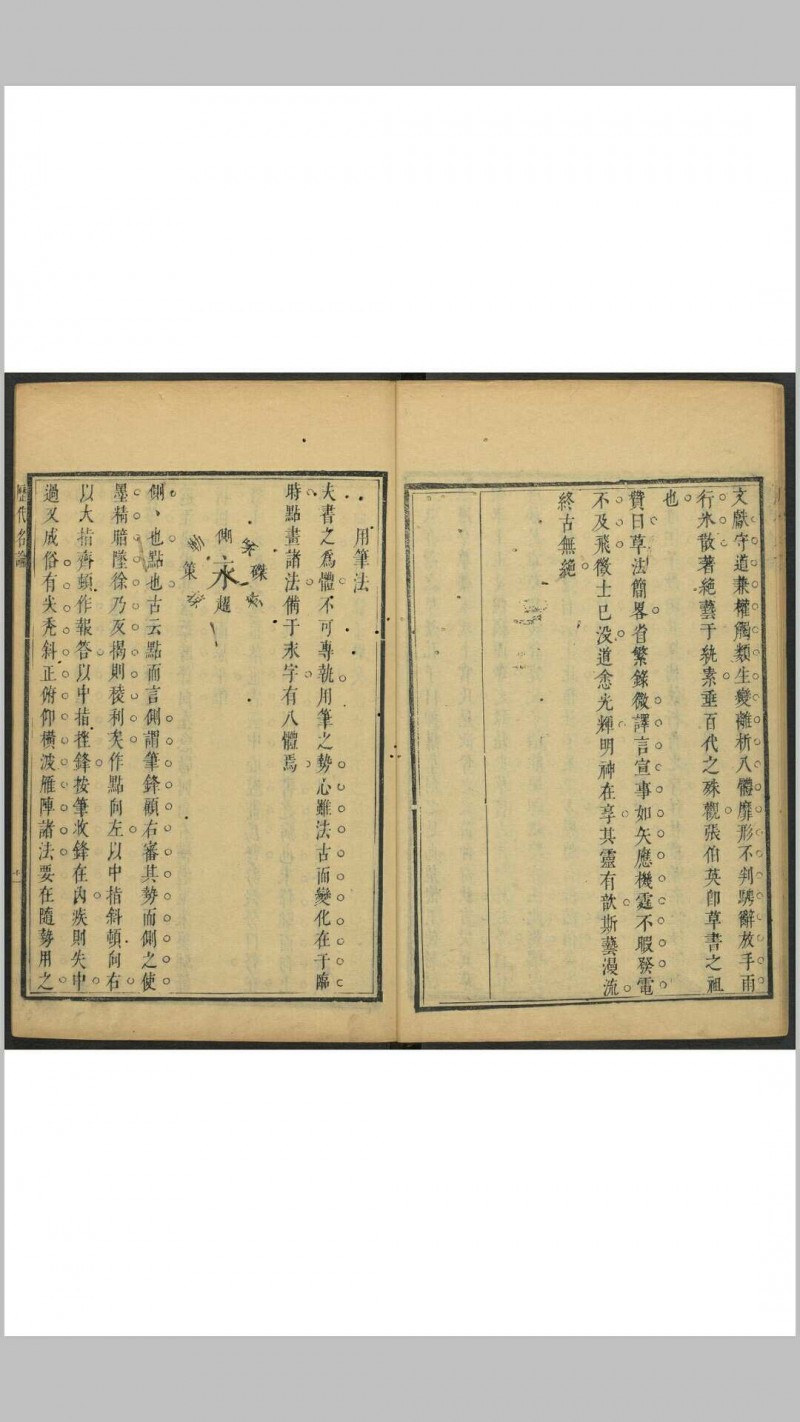 文獻守道兼權觸類生變離析八體靡形不判騁辭放手雨
行氷散著絶藝于紈素垂百代之殊觀張伯英卽草書之祖
也
賛曰草法簡畧省繁錄微譯言宣事如矢應機霆不暇發電
不及飛徵士已没道愈光輝明神在享其靈有歆斯藝漫流
終古無絶
用筆法
夫書之爲體不可專執用筆之勢心雖法古而變化在于臨
時點畫諸法備于永字有八體焉
磔
側
永
趯
策
側丶也點也古云點而言側謂筆鋒顧右審其勢而側之使
墨精暗墜徐乃反揭則稜利矣作點向左以中指斜頓向右
以大指齊頓作報答以中指挫鋒按筆收鋒在内疾則失中
過又成俗有尖禿斜正俯仰橫波雁陣諸法要在隨勢用之
歷代名論
十一